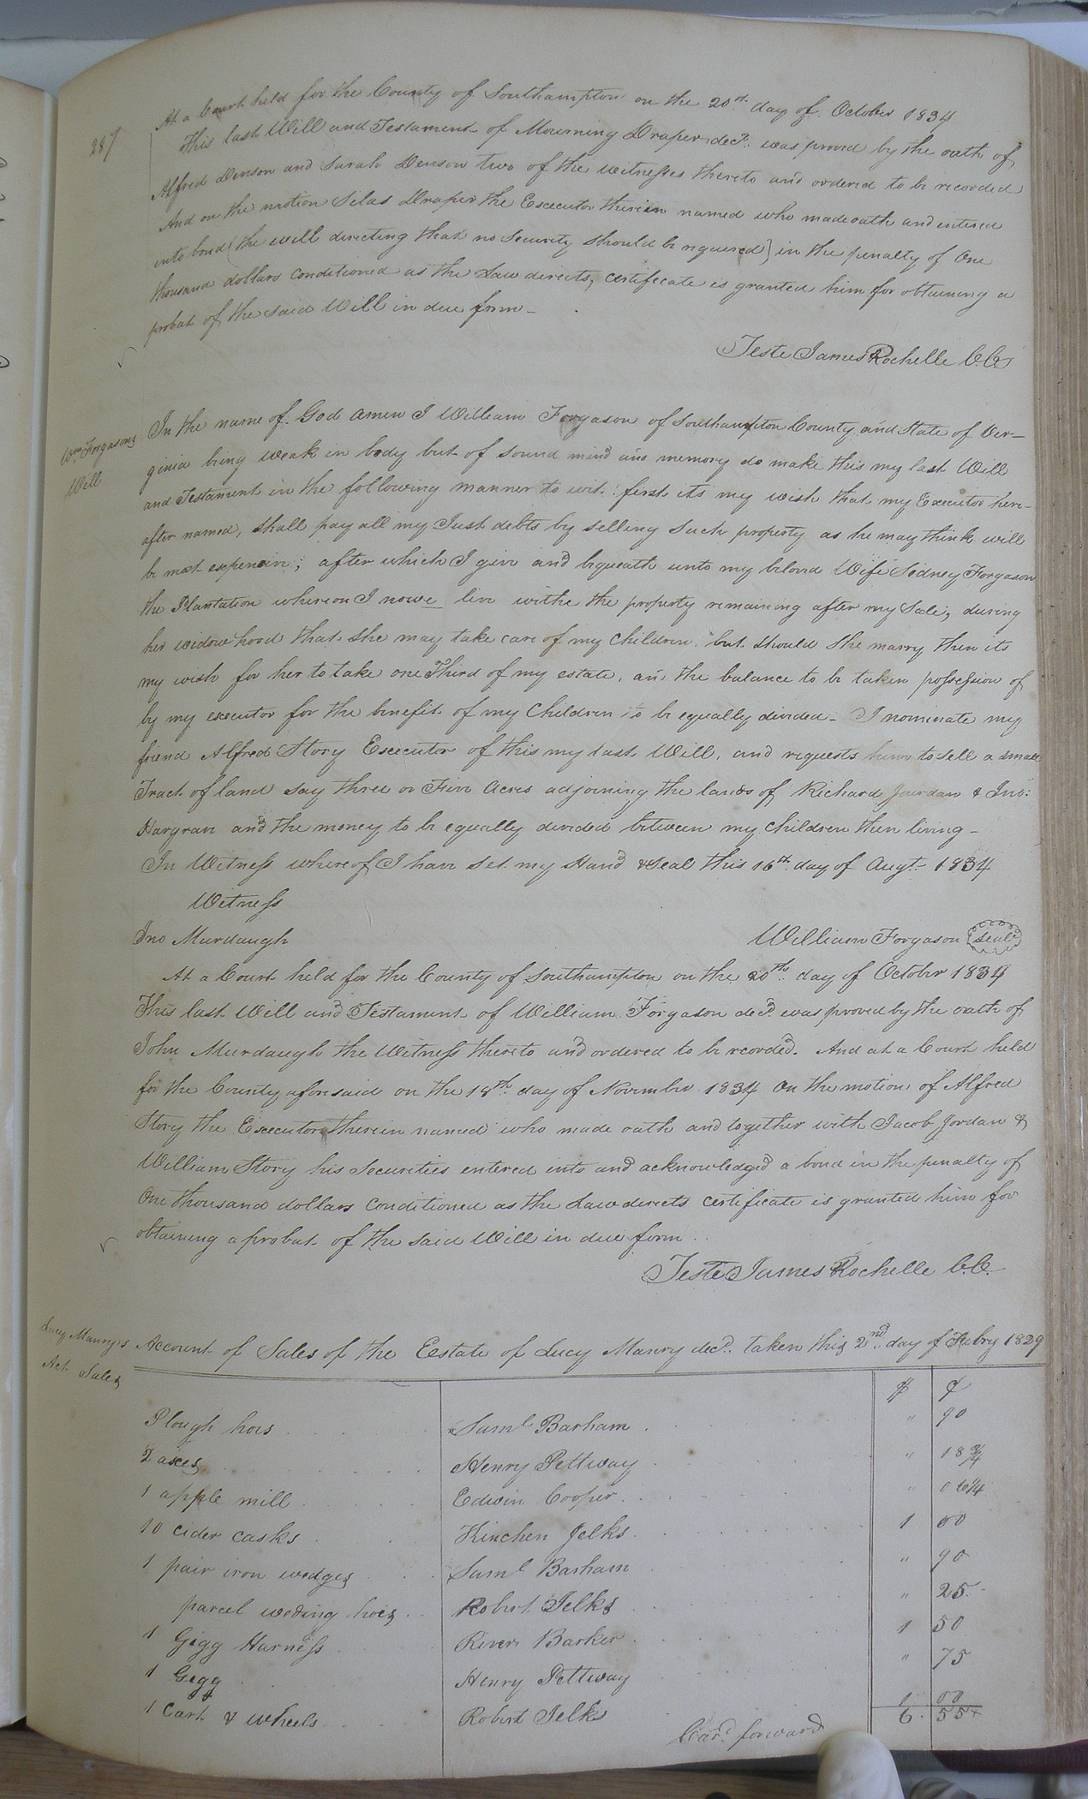 287
At a Court held for the County of Southampton on the 20th day of October 1834
This last Will and Testament of Mourning Draper decd. was proved by the oath of
Alfred Denson and Sarah Denson two of the witnesses thereto and ordered to be recorded
And on the motion Silas Draper the Executor therein named who made oath and entered
into bond (the will directing that no security should be required) in the penalty of One
thousand dollars conditioned as the Law directs, certificate is granted him for obtaining a
probat of the said Will in due form
Teste James Rochelle C.C.
Wm. Forgasons
Will
In the name of God amen I William Forgason of Southampton County and State of Ver-
ginia being weak in body but of sound mind and memory do make this my last Will
and Testament in the following manner to wit: first its my wish that my Executor here-
after named, shall pay all my Just debts by selling such property as he may think will
be most expensive; after which I give and bequeath unto my beloved Wife Sidney Forgason
the Plantation whereon I nowe live withe the property remaining after my Sale, during
her widow hood that she may take care of my children, but should she marry then its
my wish for her to take one Third of my estate, and the balance to be taken possession of
by my executor for the benefit of my Children to be equally divided. I nominate my
friend Alfred Story Executor of this my last Will, and requests him to sell a small
Tract of land say three or Five acres adjoining the lands of Richard Jourdan & Jno:
Hargrave and the money to be equally divided between my children then living-
In Witness whereof I have set my Hand & Seal this 16th day of Augt. 1834
Witness
Jno Murdaugh
William Forgason (seal)
At a Court held for the County of Southampton on the 20th day of October 1834
This last Will and Testament of William Forgason decd. was proved by the oath of
John Murdaugh the Witness thereto and ordered to be recorded. And at a Court held
for the County aforesaid on the 18th day of November 1834 On the motion of Alfred
Story the Executor therein named who made oath and together with Jacob Jordan &
William Story his securities entered into and acknowledged a bond in the penalty of
One thousand dollars Conditioned as the Law directs certificate is granted him for
obtaining a probat of the said Will in due form
Teste James Rochelle C.C.
Lucy Manry's
Act. Sales
Account of Sales of the Estate of Lucy Manry decd. taken this 2nd day of Febry 1829
$ ¢
Plough hoes Saml Barham " 90
2 axes Henry Pettway " 18 3/4
1 apple mill Edwin Cooper " 06 1/4
10 cider casks Kinchen Jelks 1 00
1 pair iron wedges Saml Barham " 90
parcel weeding hoes Robert Jelks " 25
1 Gigg Harness Rivers Barker 1 50
1 Gigg Henry Pettway " 75
1 Cart & wheels Robert Jelks 1 00
Card. forward 6. 55